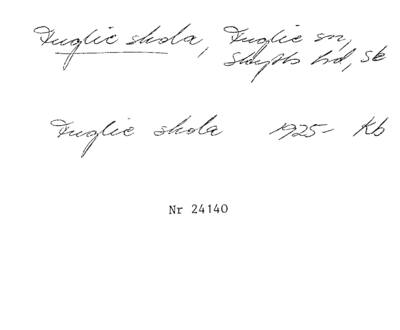 Fuglie skola, Fuglie sn,
Skytts hd, Sk
Fuglie skola 1925- Kb
Nr 24140